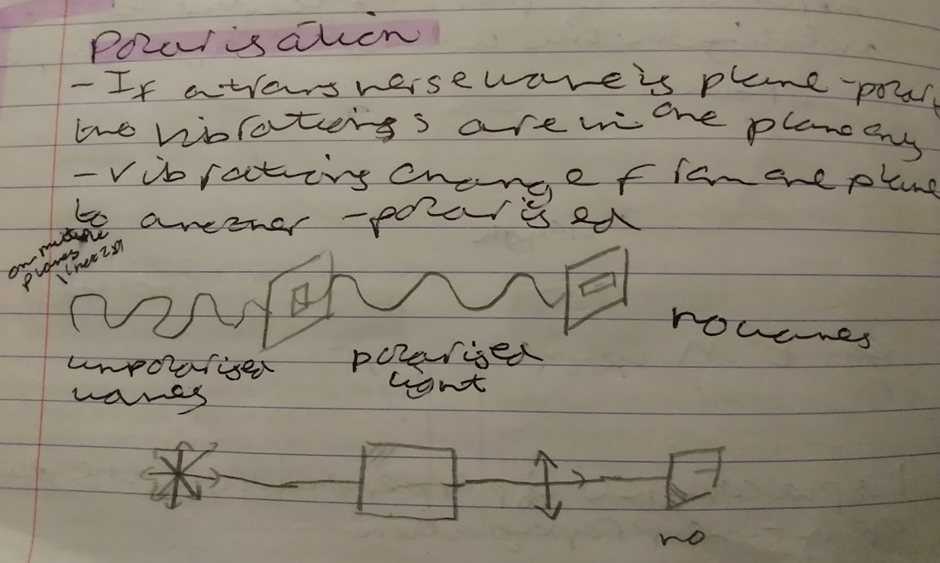 Polarisation
- If a transverse wave is plane-polar
the vibrations are in one plane only
- Vibrations change from one plane
to another - polarised
on multiple
planes
no waves
unpolarised
waves
polarised
light
no